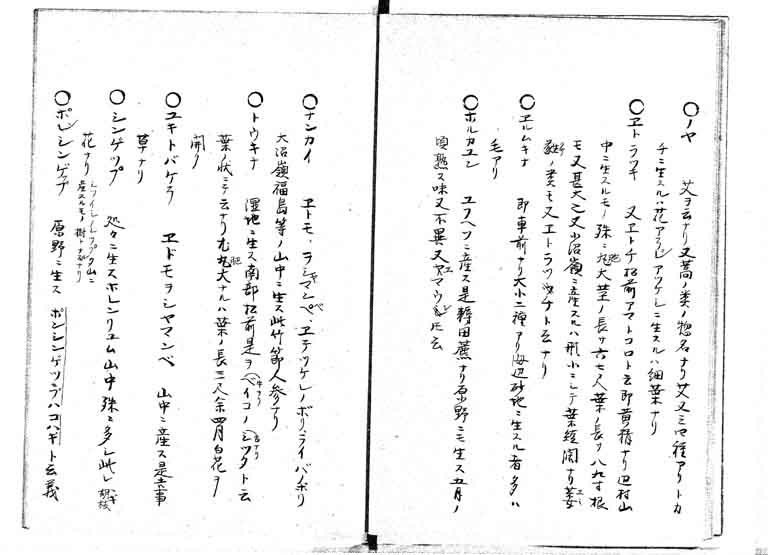 〇ノヤ　艾ヲ云ナリ又蒿ノ类ノ惣名ナリ艾又三四種アリトカ
チニ生スルハ花アラシアツケレニ生スルハ細葉ナリ
〇ヱトラツキ　又ヱトチ松前アマトコロト云即黄精ナリ辺村山
中ニ生スルモノ殊ニ肥大茎ノ長サ六七尺葉ノ長サ八九寸根
モ又甚大也又小沼嶺ニ産スルハ形小ニシテ葉短闊ナリ
ノ类モ又ヱトラツキナト云ナリ
〇ヱルムキナ　即車前ナリ大小二種アリ海辺砂地ニ生スル者多ハ
毛アリ
〇ホルカユン　ユフヘツニ産ス是耨田藨ナリ原野ニモ生ス五月ノ
頃熟ス味又不異又ヤマウトモ云
〇ナンカイ　ヱトモ、ヲシヤマンペ、ヱテツケレノボリ、ライバノボリ
大沼嶺福島等ノ山中ニ生ス此竹節人参ナリ
〇トウキナ　湿地ニ生ス南部松前是ヲベイコノシツタト云
葉ノ状ニテ云ナリ尤肥大ナルハ葉ノ長三尺余四月白花ヲ
開ク
〇ユキトバケラ　ヱドモヲシヤマンベ　山中ニ産ス是
草ナリ
〇シンケツプ　処々ニ生スホレンリユム山中殊ニ多シ此レ胡枝
花ナリ
産スルモノ樹トナルナリ
〇ポンシンゲプ　原野ニ生ス　ポンシンゲツプハコハギト云義